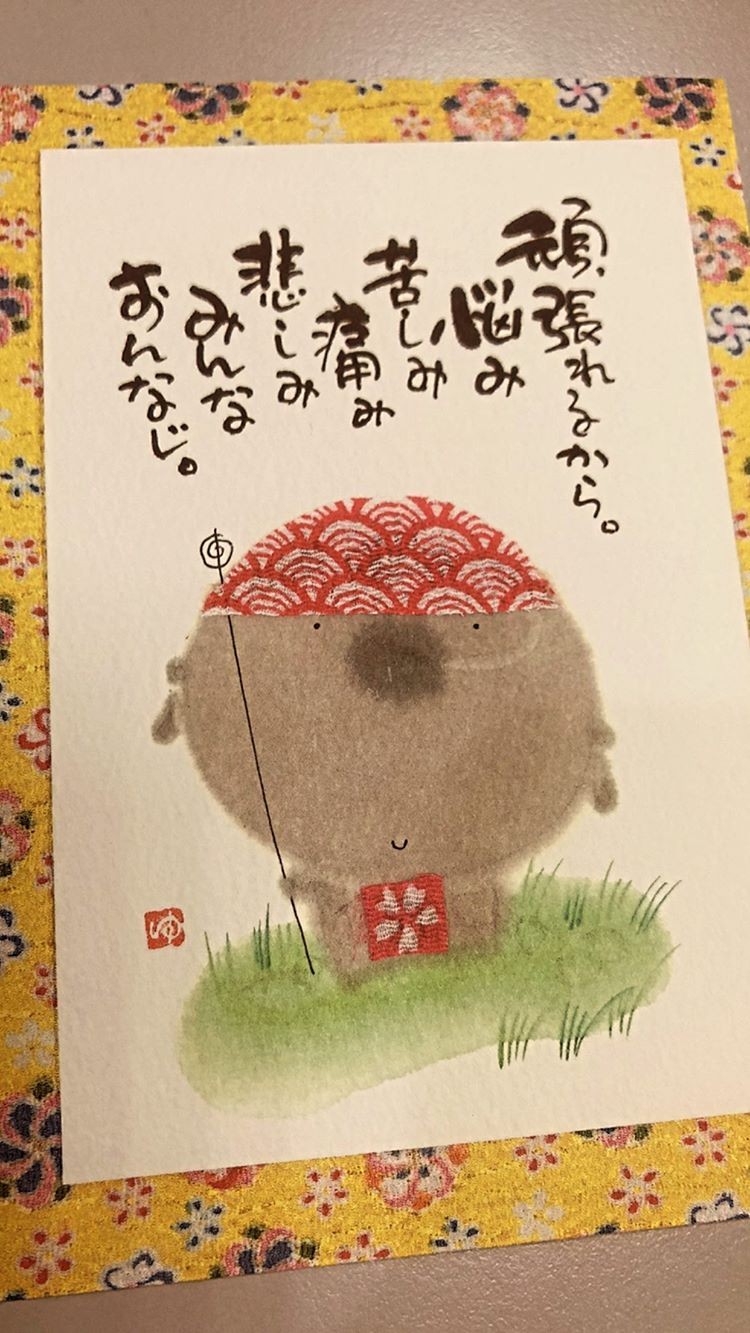 頑張れるから。
悩み
苦しみ
痛み
悲しみ
みんな
おんなじ。